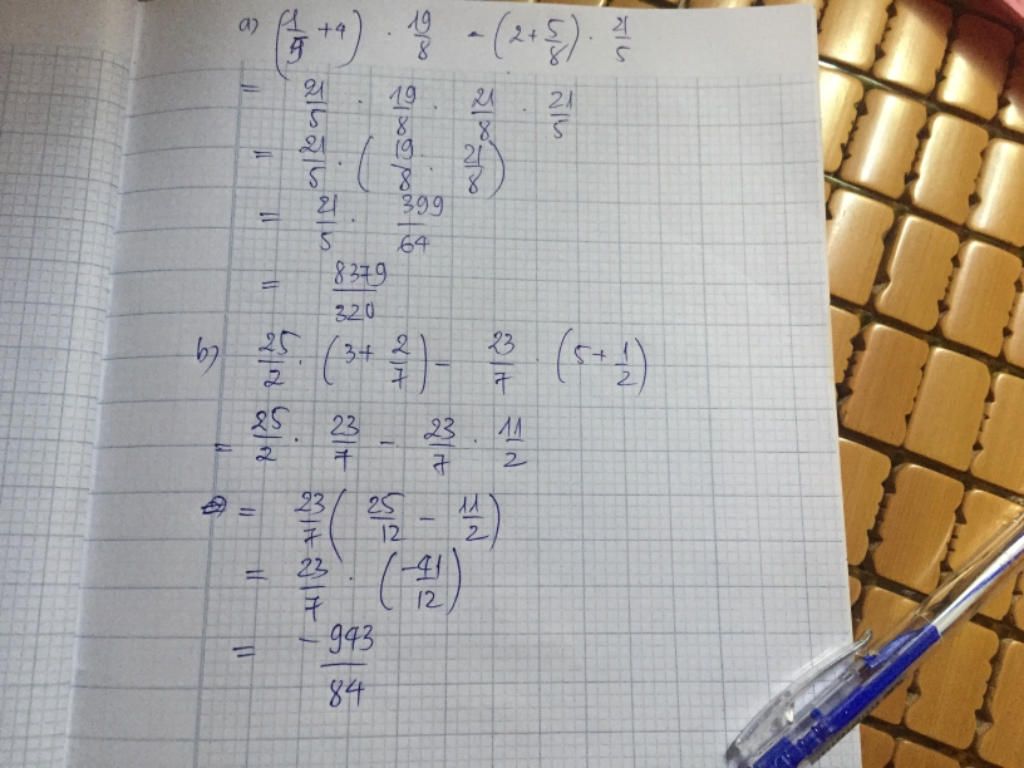 a) (1/5 + 4) · 19/8 - (2 + 5/8) · 21/5
= 21/5 · 19/8 · 21/8 · 21/5
= 21/5 · (19/8 · 21/8)
= 21/5 · 399/64
= 8379/320
b) 25/2 · (3 + 2/7) - 23/7 · (5 + 1/2)
= 25/2 · 23/7 - 23/7 · 11/2
= 23/7 (25/12 - 11/2)
= 23/7 · (-41/12)
= -943/84